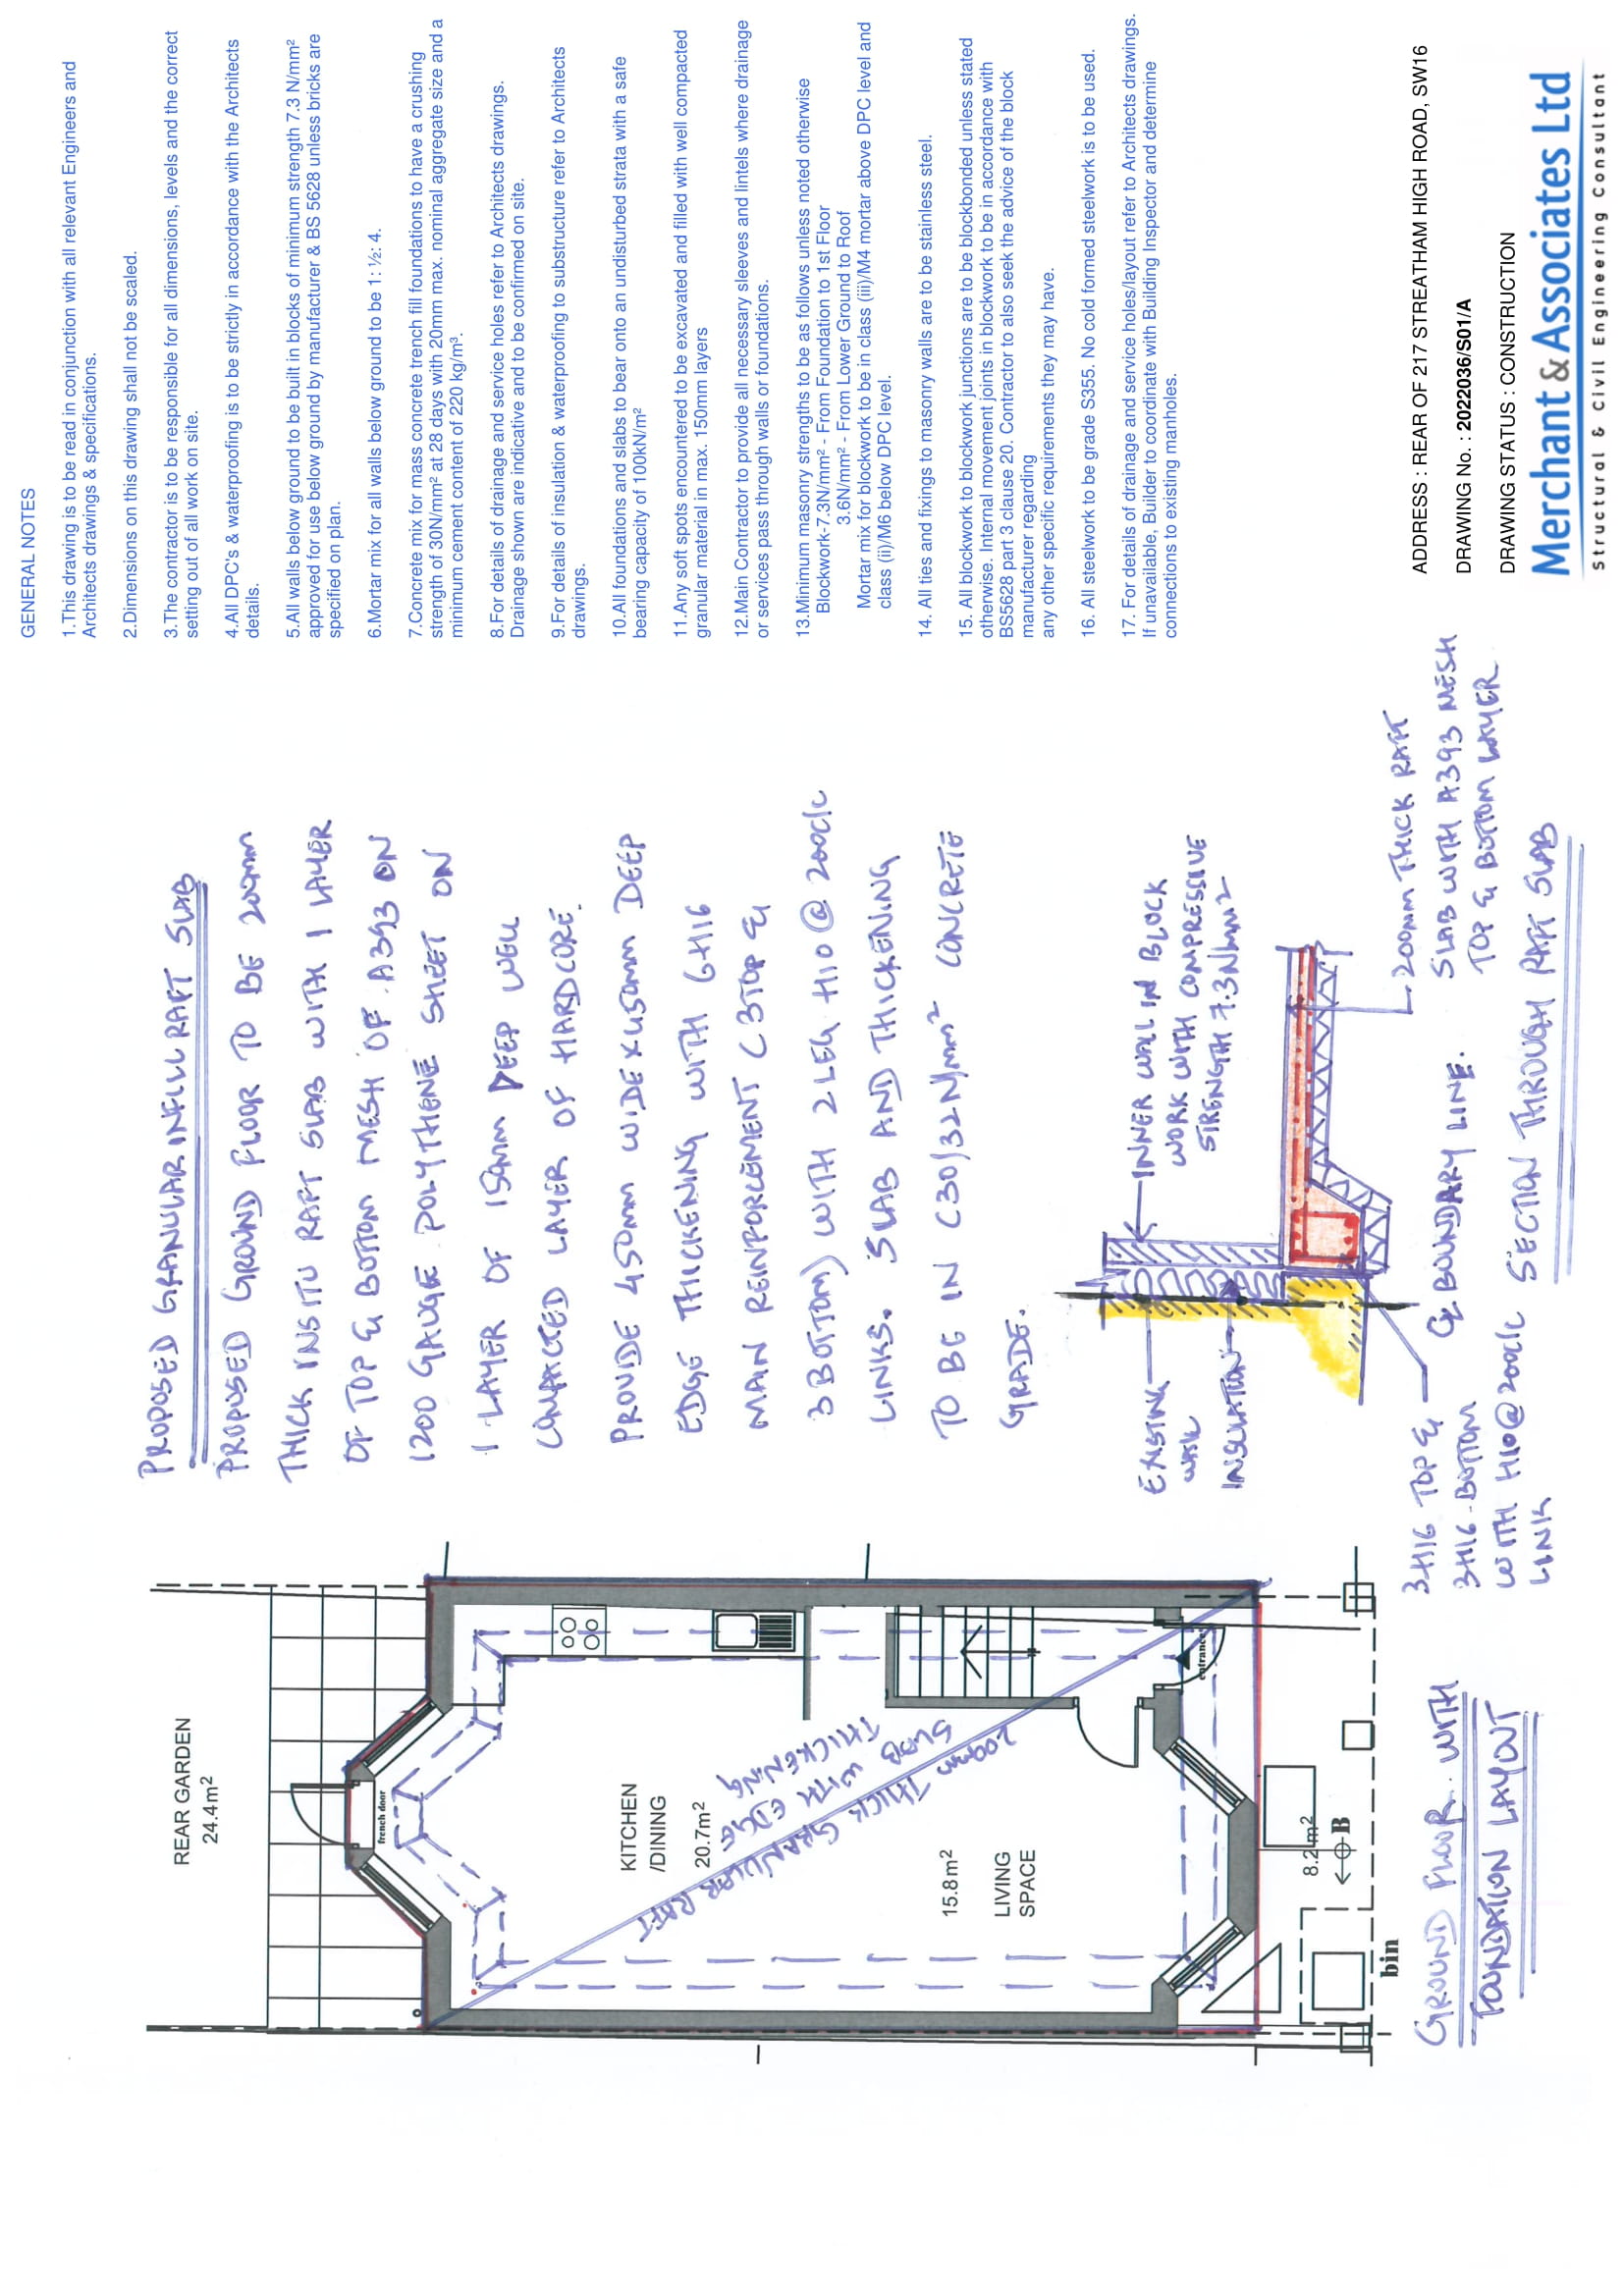 REAR GARDEN
24.4m²
french door
KITCHEN
/DINING
20.7m²
15.8m²
LIVING
SPACE
entrance
8.2m²
B
bin
200mm THICK GRANULAR RAFT
SLAB WITH EDGE
THICKENING
GROUND FLOOR WITH
FOUNDATION LAYOUT
PROPOSED GRANULAR INFILL RAFT SLAB
PROPOSED GROUND FLOOR TO BE 200mm
THICK INSITU RAFT SLAB WITH 1 LAYER
OF TOP & BOTTOM MESH OF A393 ON
1200 GAUGE POLYTHENE SHEET ON
1 LAYER OF 150mm DEEP WELL
COMPACTED LAYER OF HARDCORE.
PROVIDE 450mm WIDE X 450mm DEEP
EDGE THICKENING WITH 6H16
MAIN REINFORCEMENT (3TOP &
3 BOTTOM) WITH 2 LEG H10 @ 200c/c
LINKS. SLAB AND THICKENING
TO BE IN C30/32N/mm² CONCRETE
GRADE.
EXISTING
WALL
INSULATION
INNER WALL IN BLOCK
WORK WITH COMPRESSIVE
STRENGTH 7.3N/mm²
3H16 TOP &
3H16-BOTTOM
WITH H10@200c/c
LINK
BOUNDARY LINE.
200mm THICK RAFT
SLAB WITH A393 MESH
TOP & BOTTOM LAYER
SECTION THROUGH RAFT SLAB
GENERAL NOTES
1.This drawing is to be read in conjunction with all relevant Engineers and
Architects drawings & specifications.
2.Dimensions on this drawing shall not be scaled.
3.The contractor is to be responsible for all dimensions, levels and the correct
setting out of all work on site.
4.All DPC's & waterproofing is to be strictly in accordance with the Architects
details.
5.All walls below ground to be built in blocks of minimum strength 7.3 N/mm²
approved for use below ground by manufacturer & BS 5628 unless bricks are
specified on plan.
6.Mortar mix for all walls below ground to be 1 : ½: 4.
7.Concrete mix for mass concrete trench fill foundations to have a crushing
strength of 30N/mm² at 28 days with 20mm max. nominal aggregate size and a
minimum cement content of 220 kg/m³.
8.For details of drainage and service holes refer to Architects drawings.
Drainage shown are indicative and to be confirmed on site.
9.For details of insulation & waterproofing to substructure refer to Architects
drawings.
10.All foundations and slabs to bear onto an undisturbed strata with a safe
bearing capacity of 100kN/m²
11.Any soft spots encountered to be excavated and filled with well compacted
granular material in max. 150mm layers
12.Main Contractor to provide all necessary sleeves and lintels where drainage
or services pass through walls or foundations.
13.Minimum masonry strengths to be as follows unless noted otherwise
Blockwork-7.3N/mm² - From Foundation to 1st Floor
3.6N/mm² - From Lower Ground to Roof
Mortar mix for blockwork to be in class (iii)/M4 mortar above DPC level and
class (ii)/M6 below DPC level.
14. All ties and fixings to masonry walls are to be stainless steel.
15. All blockwork to blockwork junctions are to be blockbonded unless stated
otherwise. Internal movement joints in blockwork to be in accordance with
BS5628 part 3 clause 20. Contractor to also seek the advice of the block
manufacturer regarding
any other specific requirements they may have.
16. All steelwork to be grade S355. No cold formed steelwork is to be used.
17. For details of drainage and service holes/layout refer to Architects drawings.
If unavailable, Builder to coordinate with Building Inspector and determine
connections to existing manholes.
ADDRESS : REAR OF 217 STREATHAM HIGH ROAD, SW16
DRAWING No. : 2022036/S01/A
DRAWING STATUS : CONSTRUCTION
Merchant & Associates Ltd
Structural & Civil Engineering Consultant